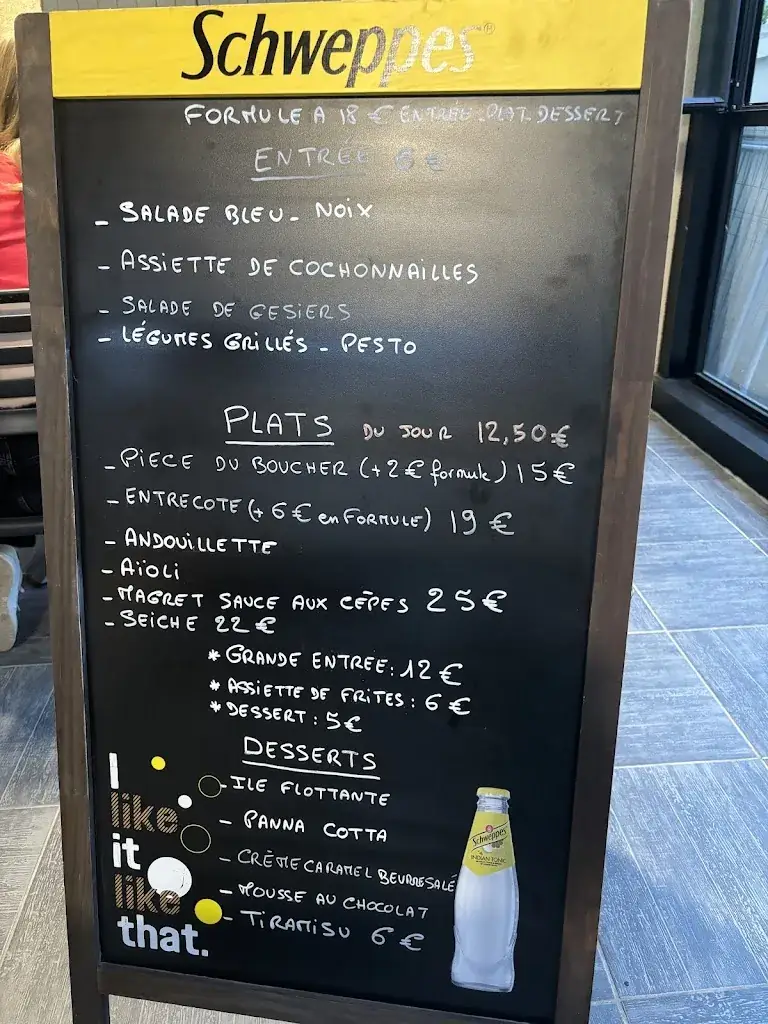 Schweppes
FORMULE A 18 € ENTRÉE-PLAT-DESSERT
ENTRÉE 6 €
- SALADE BLEU - NOIX
- ASSIETTE DE COCHONNAILLES
- SALADE DE GESIERS
- LÉGUMES GRILLÉS - PESTO
PLATS DU JOUR 12,50€
- PIECE DU BOUCHER (+2€ formule) 15€
- ENTRECOTE (+ 6€ en FORMULE) 19 €
- ANDOUILLETTE
- AÏOLI
- MAGRET SAUCE AUX CÊPES 25€
- SEICHE 22 €
* GRANDE ENTREE: 12 €
* ASSIETTE DE FRITES : 6 €
* DESSERT : 5€
DESSERTS
- ILE FLOTTANTE
- PANNA COTTA
- CRÈME CARAMEL BEURRE SALÉ
- MOUSSE AU CHOCOLAT
- TIRAMISU 6 €
I
like
it
like
that.
Schweppes
INDIAN TONIC